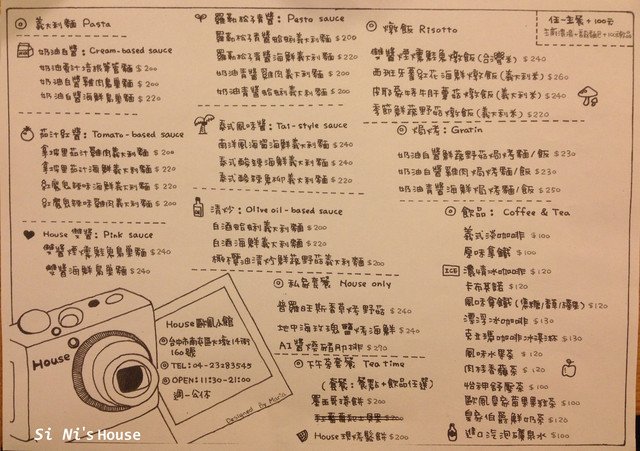 義大利麵 Pasta
奶油白醬: Cream-based sauce
奶油薑汁培根筆管麵 $200
奶油白醬雞肉鳥巢麵 $200
奶油白醬海鮮鳥巢麵 $220
茄汁紅醬: Tomato-based sauce
拿坡里茄汁雞肉義大利麵 $200
拿坡里茄汁海鮮義大利麵 $220
紅魔鬼辣味海鮮義大利麵 $220
紅魔鬼辣味雞肉義大利麵 $200
House 雙醬: Pink sauce
雙醬煙燻鮭魚鳥巢麵 $240
雙醬海鮮鳥巢麵 $240
羅勒松子青醬: Pesto sauce
羅勒松子青醬蛤蜊義大利麵 $200
羅勒松子青醬海鮮義大利麵 $220
奶油青醬雞肉義大利麵 $200
奶油青醬蛤蜊義大利麵 $200
泰式風味醬: Tai-style sauce
南洋風海鮮義大利麵 $240
泰式酸辣海鮮義大利麵 $220
泰式酸辣魚柳義大利麵 $220
清炒: Olive oil-based sauce
白酒蛤蜊義大利麵 $200
白酒海鮮義大利麵 $220
橄欖油清炒鮮蔬野菇義大利麵 $200
私房套餐 House only
普羅旺斯香草烤野菇 $240
地中海玫瑰鹽烤海鮮 $240
A1醬燒豬肋排 $290
下午茶套餐 Tea time
(套餐: 餐點+飲品任選)
墨西哥薄餅 $200
$200
House 現烤鬆餅 $200
任一主餐 + 100元
燉飯 Risotto
雙醬煙燻鮭魚燉飯(台灣米) $240
西班牙番紅花海鮮燉飯(義大利米) $260
皮耶蒙味牛肝蕈菇燉飯(義大利米) $240
季節鮮蔬野菇燉飯(義大利米) $220
焗烤: Gratin
奶油白醬鮮蔬野菇焗烤麵/飯 $230
奶油白醬雞肉焗烤麵/飯 $230
奶油青醬海鮮焗烤麵/飯 $250
飲品: Coffee & Tea
義式濃咖啡 $100
原味拿鐵 $100
ICE 濃情冰咖啡 $120
卡布其諾 $120
風味拿鐵(焦糖/香草/榛果) $120
漂浮冰咖啡 $130
克里瑪咖啡冰淇淋 $130
風味水果茶 $120
肉桂香蘋茶 $120
怡神舒壓茶 $100
歐風皇家莓果果粒茶 $100
皇家伯爵鮮奶茶 $120
進口汽泡礦泉水 $100
House
House歐風小館
台中市南屯區大墩14街160號
TEL: 04-23283545
OPEN: 11:30-21:00
週一公休
Designed by Marin
Si Ni's House